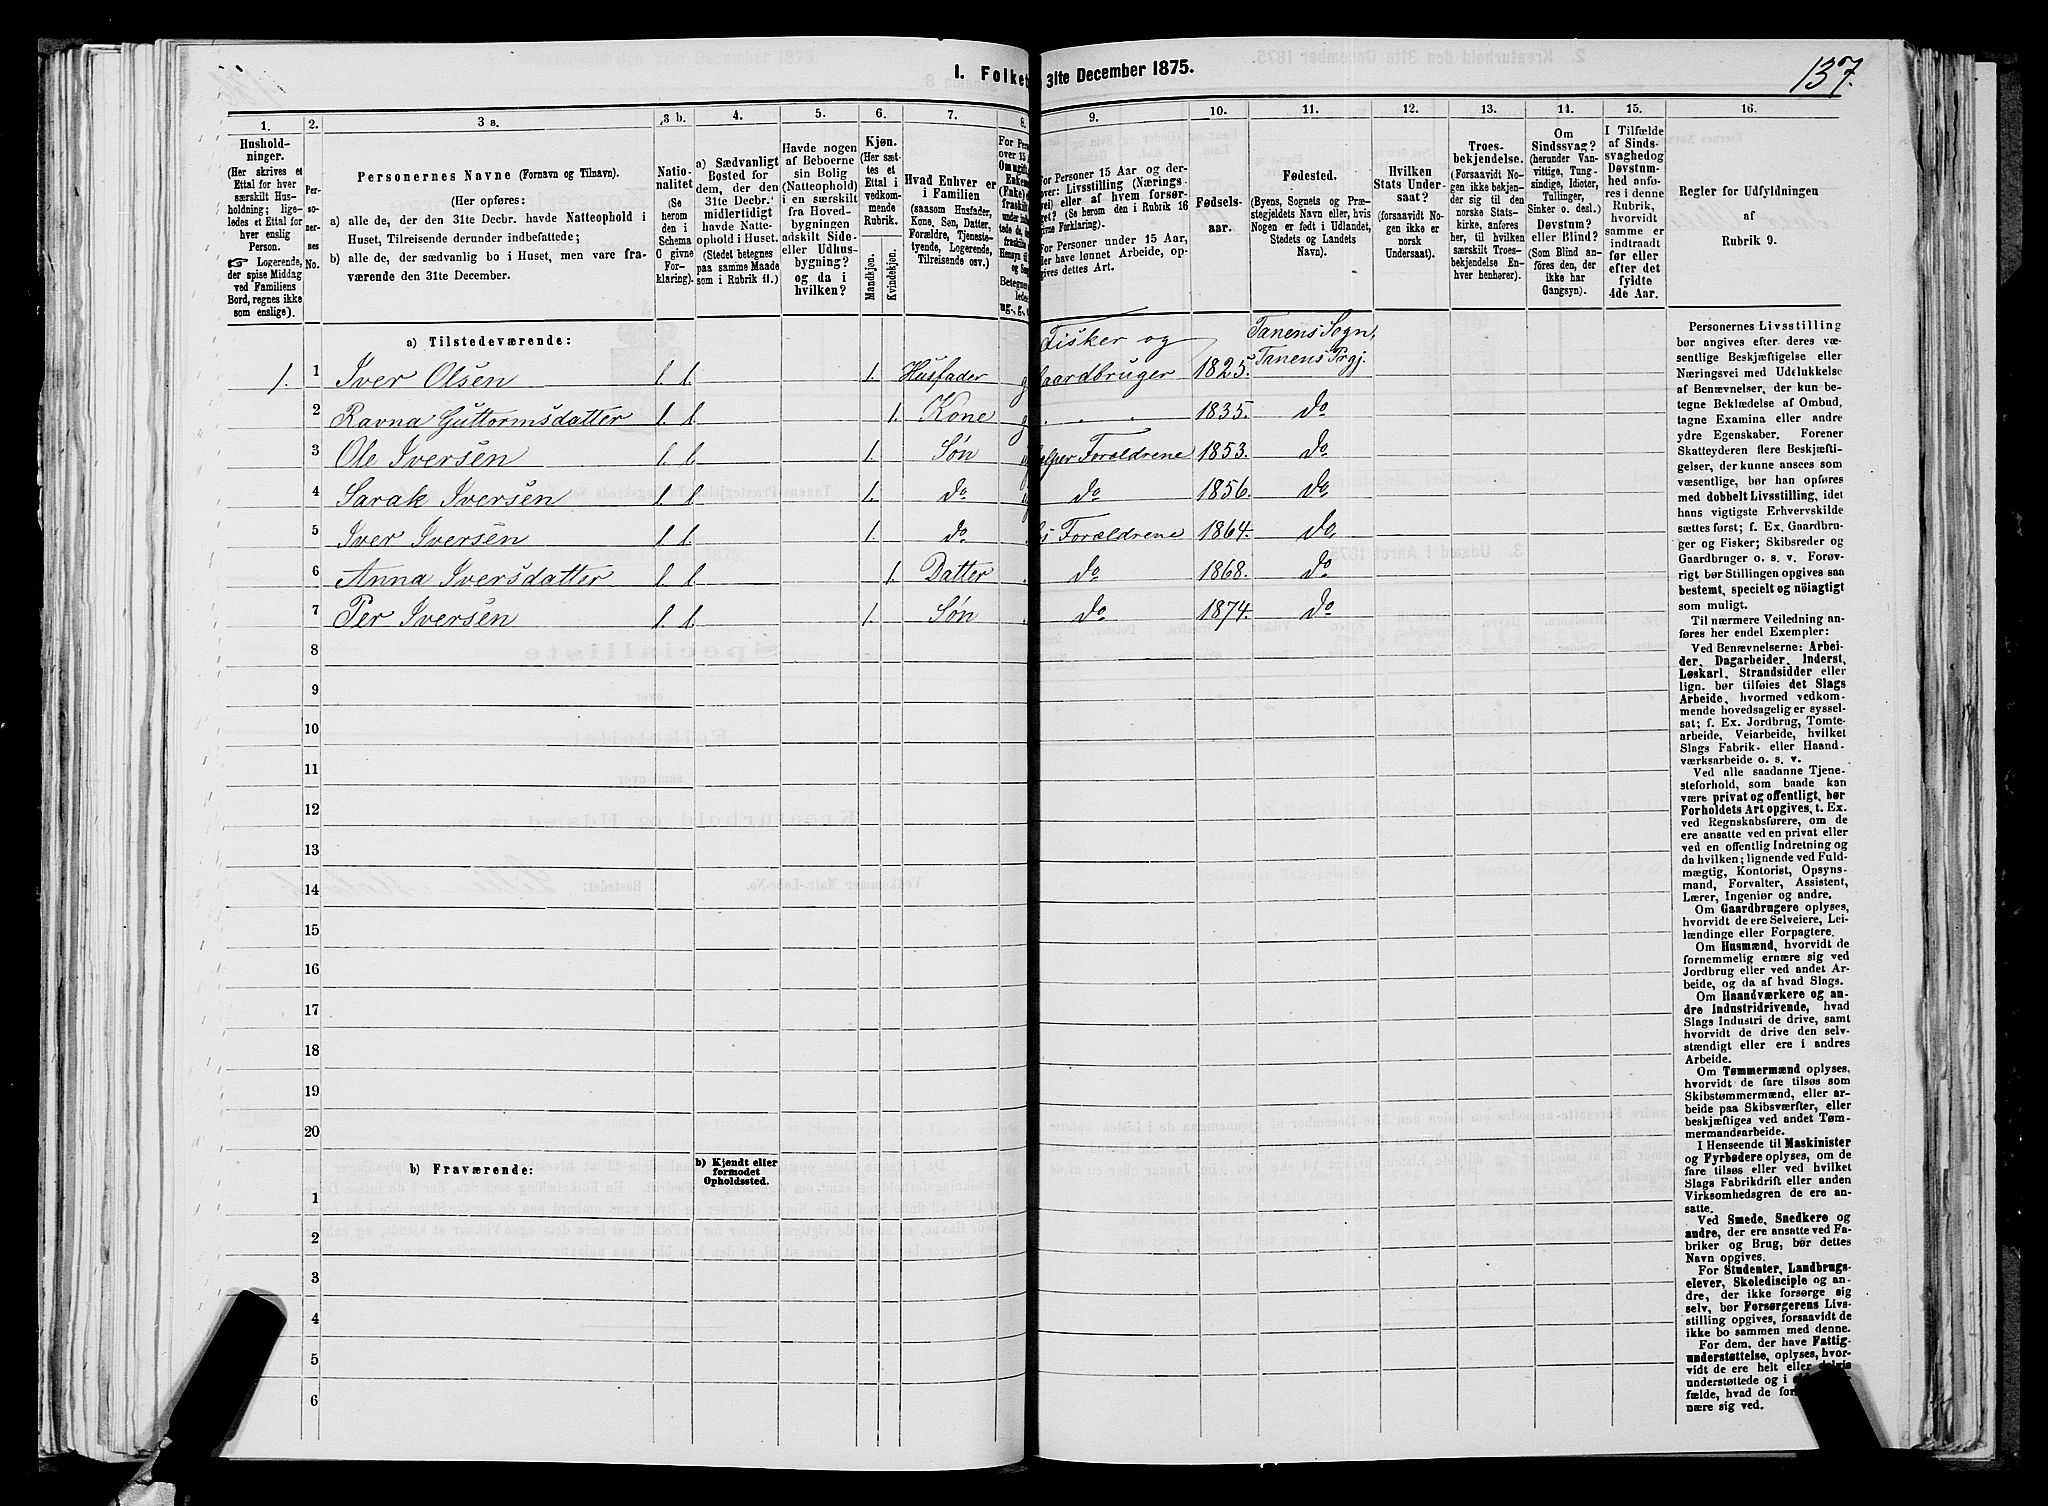 137.
1. Folket 31te December 1875.
1. 2. 3 a. 3 b. 4. 5. 6. 7. 8. 9. 10. 11. 12. 13. 14. 15. 16.
Hushold-
ninger.
(Her skrives et
Ettal for hver
særskilt Hus-
holdning; lige-
ledes et Ettal for
hver enslig
Person.
☞ Logerende,
der spise Middag
ved Familiens
Bord, regnes ikke
som enslige).
Per-
so-
ner-
nes
No.
Personernes Navne (Fornavn og Tilnavn).
(Her opføres:
a) alle de, der den 31te Decbr. havde Natteophold i
Huset, Tilreisende derunder indbefattede;
b) alle de, der sædvanlig bo i Huset, men vare fra-
værende den 31te December.
Natio-
nalitet
(Se
herom
den i
Schema
C givne
For-
klaring).
a) Sædvanligt
Bosted for
dem, der den
31te Decbr.
midlertidigt
havde Natte-
ophold i Huset.
(Stedet betegnes
paa samme Maade
som i Rubrik 11.)
Havde nogen
af Beboerne
sin Bolig
(Natteophold)
i en særskilt
fra Hoved-
bygningen
adskilt Side-
eller Udhus-
bygning?
og da i
hvilken?
Kjøn.
(Her sæt-
tes et
Ettal i
vedkom-
mende
Rubrik.
Mandkjøn.
Kvindekjøn.
Hvad Enhver er
i Familien
(saasom Husfader,
Kone, Søn, Datter,
Forældre, Tjeneste-
tyende, Logerende,
Tilreisende osv.)
For Personer 15 Aar og der-
over: Livsstilling (Nærings-
vei) eller af hvem forsør-
get? (Se herom den i Rubrik 16
givne Forklaring).
For Personer under 15 Aar,
der have lønnet Arbeide, op-
gives dettes Art.
Fødsels-
aar.
Fødested.
(Byens, Sognets og Præ-
stegjeldets Navn eller, hvis
Nogen er født i Udlandet,
Stedets og Landets
Navn).
Hvilken
Stats Under-
saat?
(forsaavidt No-
gen ikke er
norsk
Undersaat).
Troes-
bekjendelse.
(Forsaavidt No-
gen ikke bekjen-
der sig til den
norske Stats-
kirke, anføres
her, til hvilken
særskilt Troes-
bekjendelse En-
hver henhører).
Om
Sindssvag?
(herunder Van-
vittige, Tung-
sindige, Idioter,
Tullinger,
Sinker o. desl.)
Døvstum?
eller Blind?
(Som Blind an-
føres den, der
ikke har
Gangsyn).
I Tilfælde
af Sinds-
svaghedog
Døvstum-
hed anfø-
res i denne
Rubrik,
hvorvidt
samme er
indtraadt
før eller
efter det
fyldte
4de Aar.
Regler for Udfyldningen
af
Rubrik 9.
a) Tilstedeværende:
Fisker og Tanens Sogn,
1. 1 Iver Olsen 1. 1. 1. Husfader g Gaardbruger 1825. Tanens Prgj.
2 Ravna Guttormsdatter 1. 1. 1. Kone g " " 1835. do
3 Ole Iversen 1. 1. 1. Søn Forældrene 1853. do
4 Sarak Iversen 1. 1. 1. do do 1856. do
5 Iver Iversen 1. 1. 1. do Forældrene 1864. do
6 Anna Iversdatter 1. 1. 1. Datter do 1868. do
7 Per Iversen 1. 1. 1. Søn do 1874. do
8
9
10
11
12
13
14
15
16
17
18
19
20
b) Fraværende:
b) Kjendt eller
formodet
Opholdssted.
1
2
3
4
5
6
Personernes Livsstilling
bør angives efter deres
væsentlige Beskjæftigelse eller
Næringsvei med Udelukkelse
af Benævnelser, der kun be-
tegne Beklædelse af Ombud,
tagne Examina eller andre
ydre Egenskaber. Forener
Skatteyderen flere Beskjæfti-
gelser, der kunne ansees som
væsentlige, bør han opføres
med dobbelt Livsstilling, idet
hans vigtigste Erhvervskilde
sættes først; f. Ex. Gaardbru-
ger og Fisker; Skibsreder og
Gaardbruger o. s. v. Forøv-
rigt bør Stillingen opgives saa
bestemt, specielt og nöiagtigt
som muligt.
Til nærmere Veiledning an-
føres her endel Exempler:
Ved Benævnelserne: Arbei-
der, Dagarbeider, Inderst,
Løskarl, Strandsidder eller
lign. bør tilføies det Slags
Arbeide, hvormed vedkom-
mende hovedsagelig er syssel-
sat; f. Ex. Jordbrug, Tomte-
arbeide, Veiarbeide, hvilket
Slags Fabrik- eller Haand-
værksarbeide o. s. v.
Ved alle saadanne Tjene-
steforhold, som baade kan
være privat og offentligt, bør
Forholdets Art opgives, t. Ex.
ved Regnskabsførere, om de
ere ansatte ved en privat eller
ved en offentlig Indretning og
da hvilken; lignende ved Fuld-
mægtig, Kontorist, Opsyns-
mand, Forvalter, Assistent,
Lærer, Ingeniør og andre.
Om Gaardbrugere oplyses,
hvorvidt de ere Selveiere, Lei-
lændinge eller Forpagtere.
Om Husmænd, hvorvidt de
fornemmelig ernære sig ved
Jordbrug eller ved andet Ar-
beide, og da af hvad Slags.
Om Haandværkere og an-
dre Industridrivende, hvad
Slags Industri de drive, samt
hvorvidt de drive den selv-
stændigt eller ere i andres
Arbeide.
Om Tømmermænd oplyses,
hvorvidt de fare tilsøs som
Skibstømmermænd, eller ar-
beide paa Skibsværfter, eller
beskjæftiges ved andet Tøm-
mermandsarbeide.
I Henseende til Maskinister
og Fyrbødere oplyses, om de
fare tilsøs eller ved hvilket
Slags Fabrikdrift eller anden
Virksomhedsgren de ere an-
satte.
Ved Smede, Snedkere og
andre, der ere ansatte ved Fa-
briker og Brug, bør dettes
Navn opgives.
For Studenter, Landbrugs-
elever, Skoledisciple og an-
dre, der ikke forsørge sig
selv, bør Forsørgerens Livs-
stilling opgives, forsaavidt de
ikke bo sammen med denne.
For dem, der have Fattig-
understøttelse, oplyses, hvor-
vidt de ere helt eller delvis
understøttede og i
fælde, hvad de
nære sig ved.